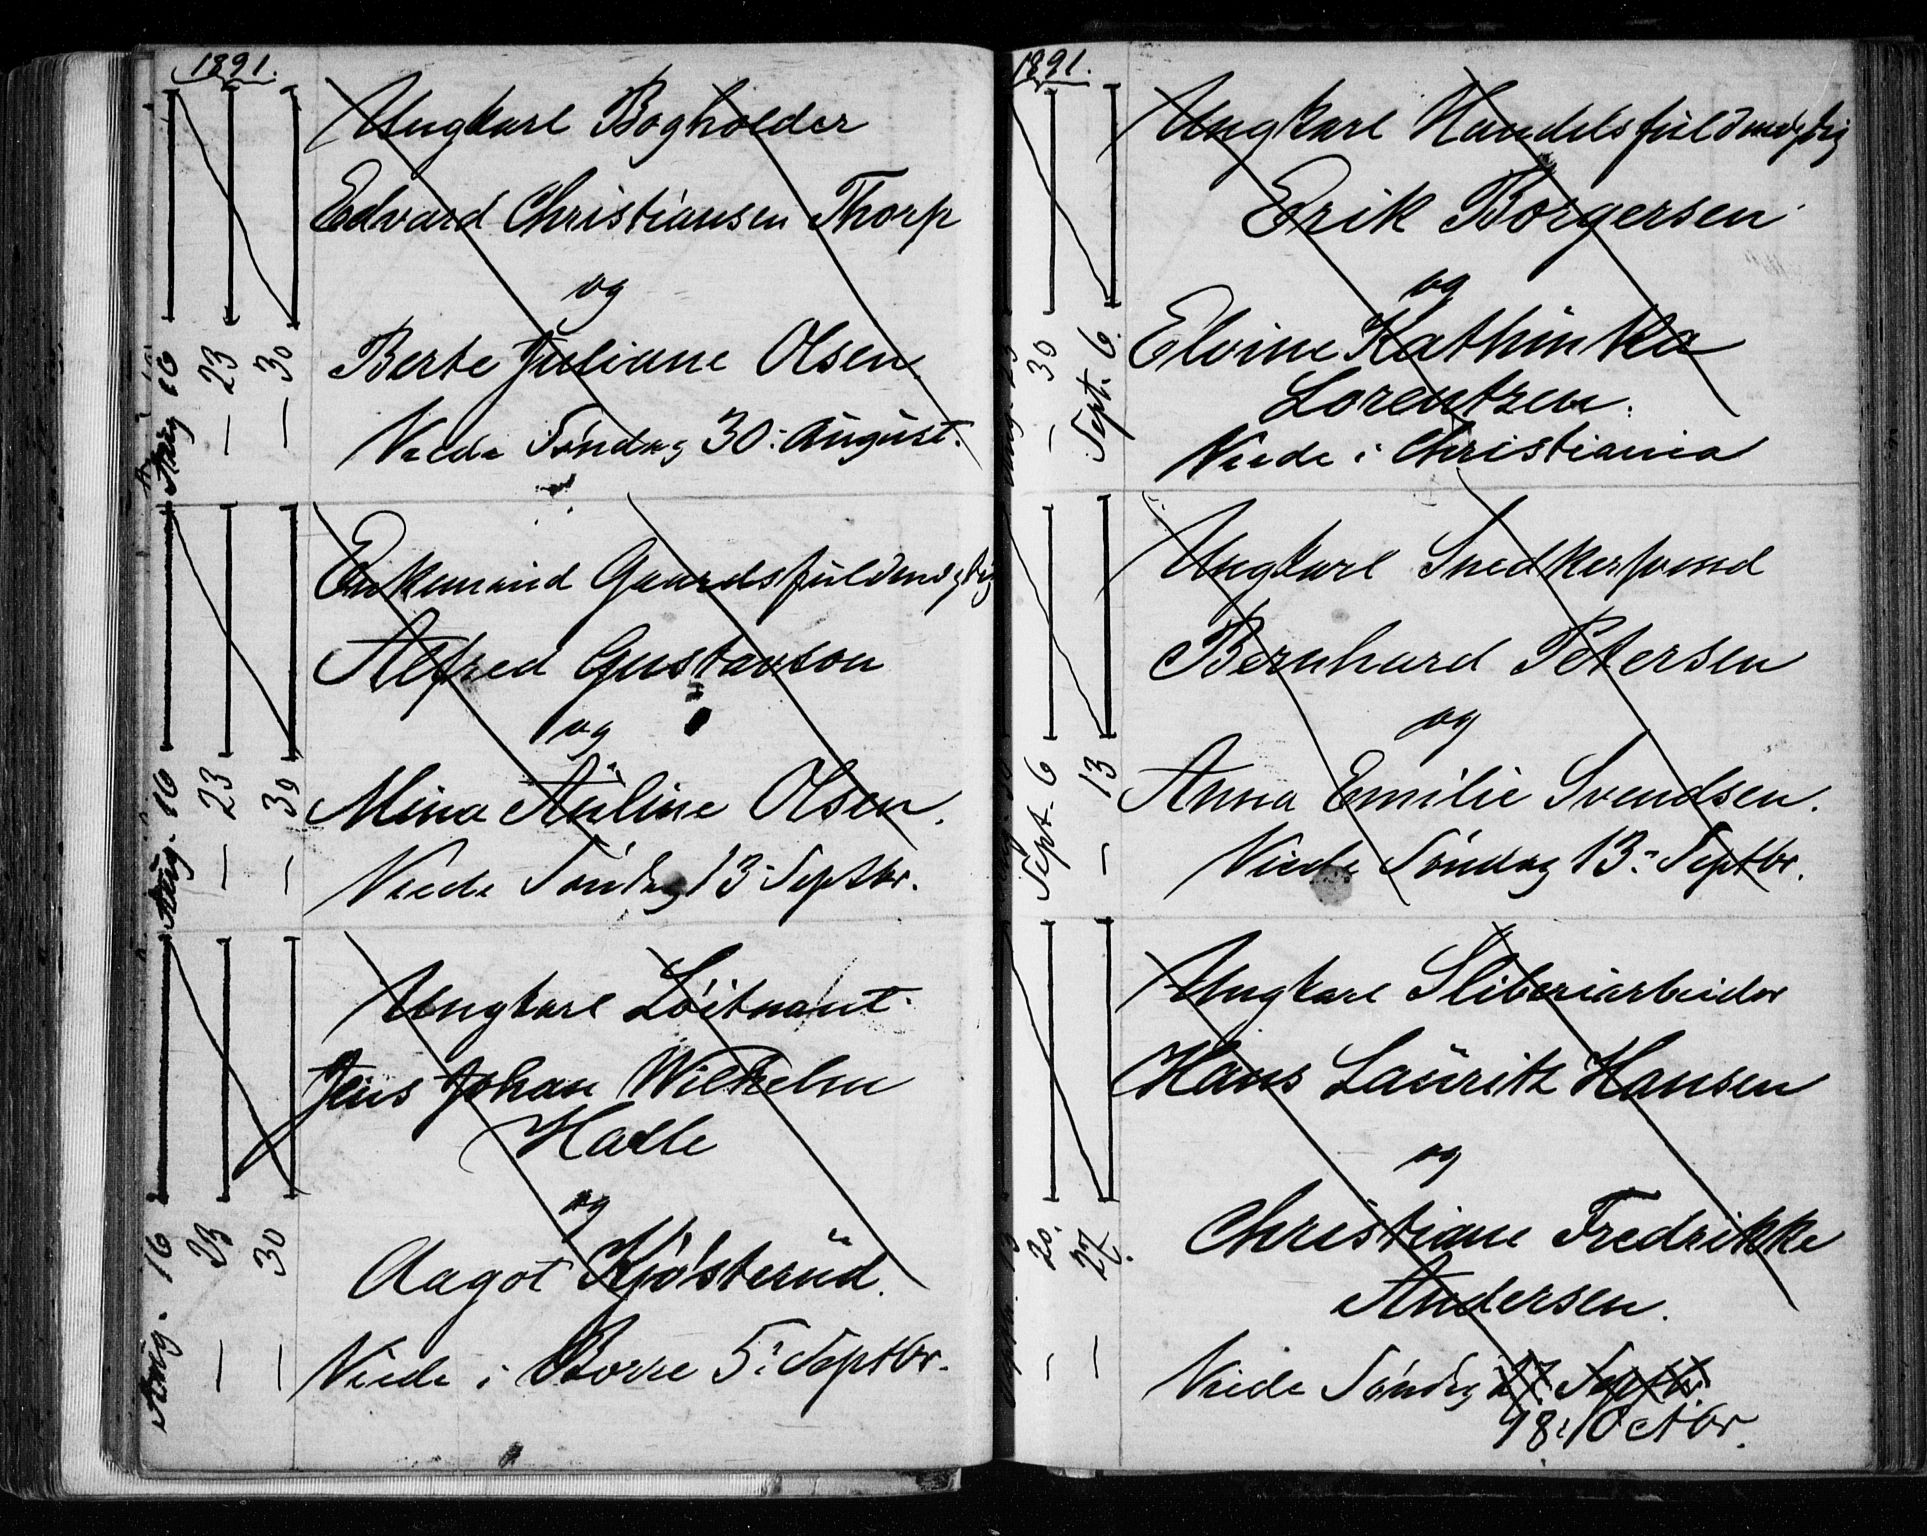 1891.
Ungkarl Bogholder
Edvard Christiansen Thorp
og
Berte Juliane Olsen.
Viede Søndag 30: August.
Aug 16
— 23
— 30
Enkemand Gaardsfuldmægtig
Alfred Gustavson
og
Mina Aüline Olsen.
Viede Søndag 13: Septbr.
Aug. 16
— 23
— 30
Ungkarl Löitnant
Jens Johan Wilhelm
Halle
og
Aagot Kjøsterüd.
Viede i Borre 5: Septbr.
Aug. 16
— 23
— 30
1891.
Ungkarl Handelsfuldmægtig
Erik Borgersen
og
Elvine Kathinka
Lorentzen.
Viede i Christiania
— 30
Sept. 6.
Ungkarl Snedkersvend
Bernhard Petersen
og
Anna Emilie Svendsen.
Viede Søndag 13: Septbr.
Sept. 6
— 13
Ungkarl Sliberiarbeider
Hans Laüritz Hansen
og
Christiane Fredrikke
Andersen.
Viede Søndag 27 Septbr
18: Octbr.
— 20.
— 27.